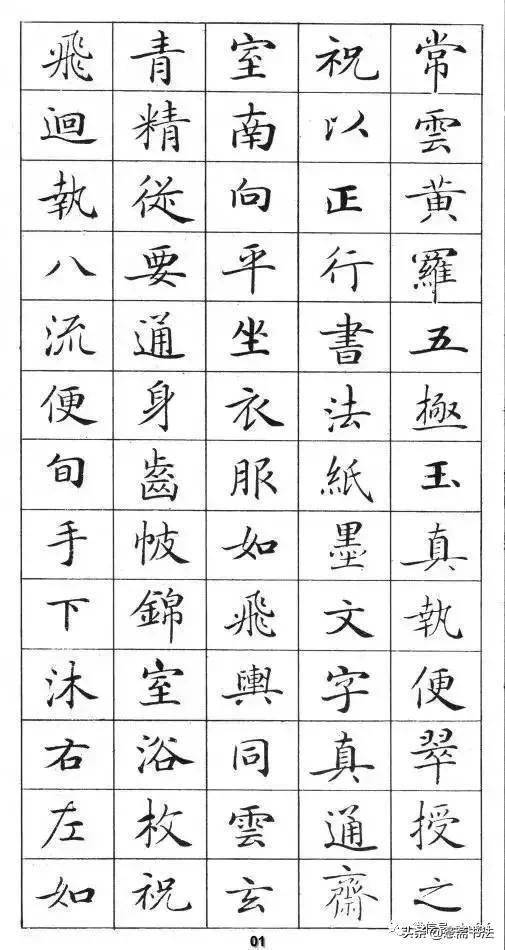 常雲黄羅五極玉真執便翠授之
祝以正行書法紙墨文字真通齋
室南向平坐衣服如飛輿同雲玄
青精從要通身齒帔錦室浴枚祝
飛迴執八流便旬手下沐右左如
01
头条 书法